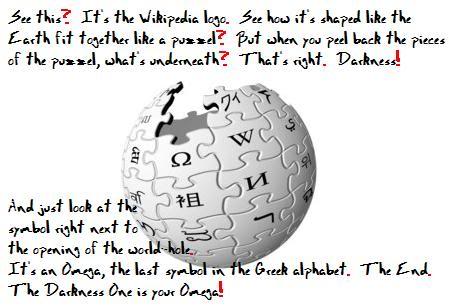 See this? It's the Wikipedia logo. See how it's shaped like the
Earth fit together like a puzzel? But when you peel back the pieces
of the puzzel, what's underneath? That's right. Darkness!
ワィ
Ω W
祖 И
And just look at the
symbol right next to
the opening of the world-hole.
It's an Omega, the last symbol in the Greek alphabet. The End.
The Darkness One is your Omega!